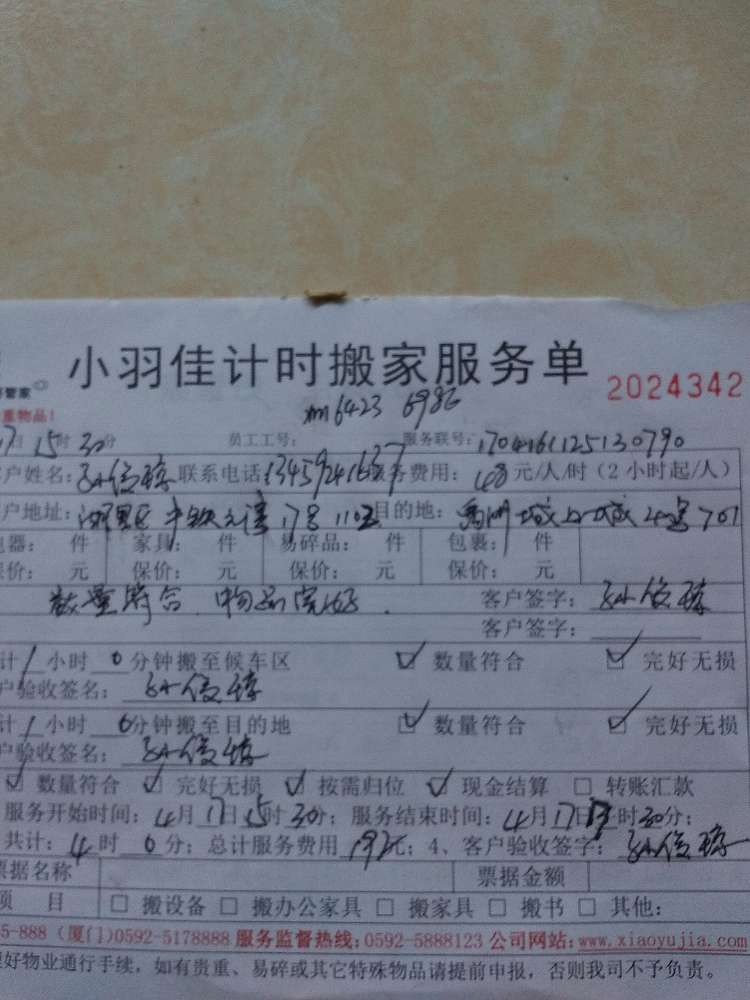 小羽佳计时搬家服务单
2024342
管家
重物品！
xm6423 6986
17日 15时 30分 员工工号： 服务联号：1704161125130790
户姓名： 联系电话 费用：48元/人/时（2小时起/人）
户地址：湖里区 17号 目的地：禹洲 城上城 701
器： 件 家具： 件 易碎品： 件 包裹： 件
保价： 元 保价： 元 保价： 元 保价： 元
数量符合．物品完好． 客户签字：
客户签字：
计1小时 0分钟搬至候车区 ☑ 数量符合 ☑ 完好无损
户验收签名：
计1小时 0分钟搬至目的地 ☑ 数量符合 ☑ 完好无损
户验收签名：
☑ 数量符合 ☑ 完好无损 ☑ 按需归位 ☑ 现金结算 □ 转账汇款
服务开始时间：4月17日15时30分；服务结束时间：4月17日 时30分；
共计：4时 0分；总计服务费用 192元；4、客户验收签字：
票据名称 票据金额
项 目 □ 搬设备 □ 搬办公家具 □ 搬家具 □ 搬书 □ 其他：
5-888（厦门）0592-5178888 服务监督热线：0592-5888123 公司网站：www.xiaoyujia.com
好物业通行手续，如有贵重、易碎或其它特殊物品请提前申报，否则我司不予负责。